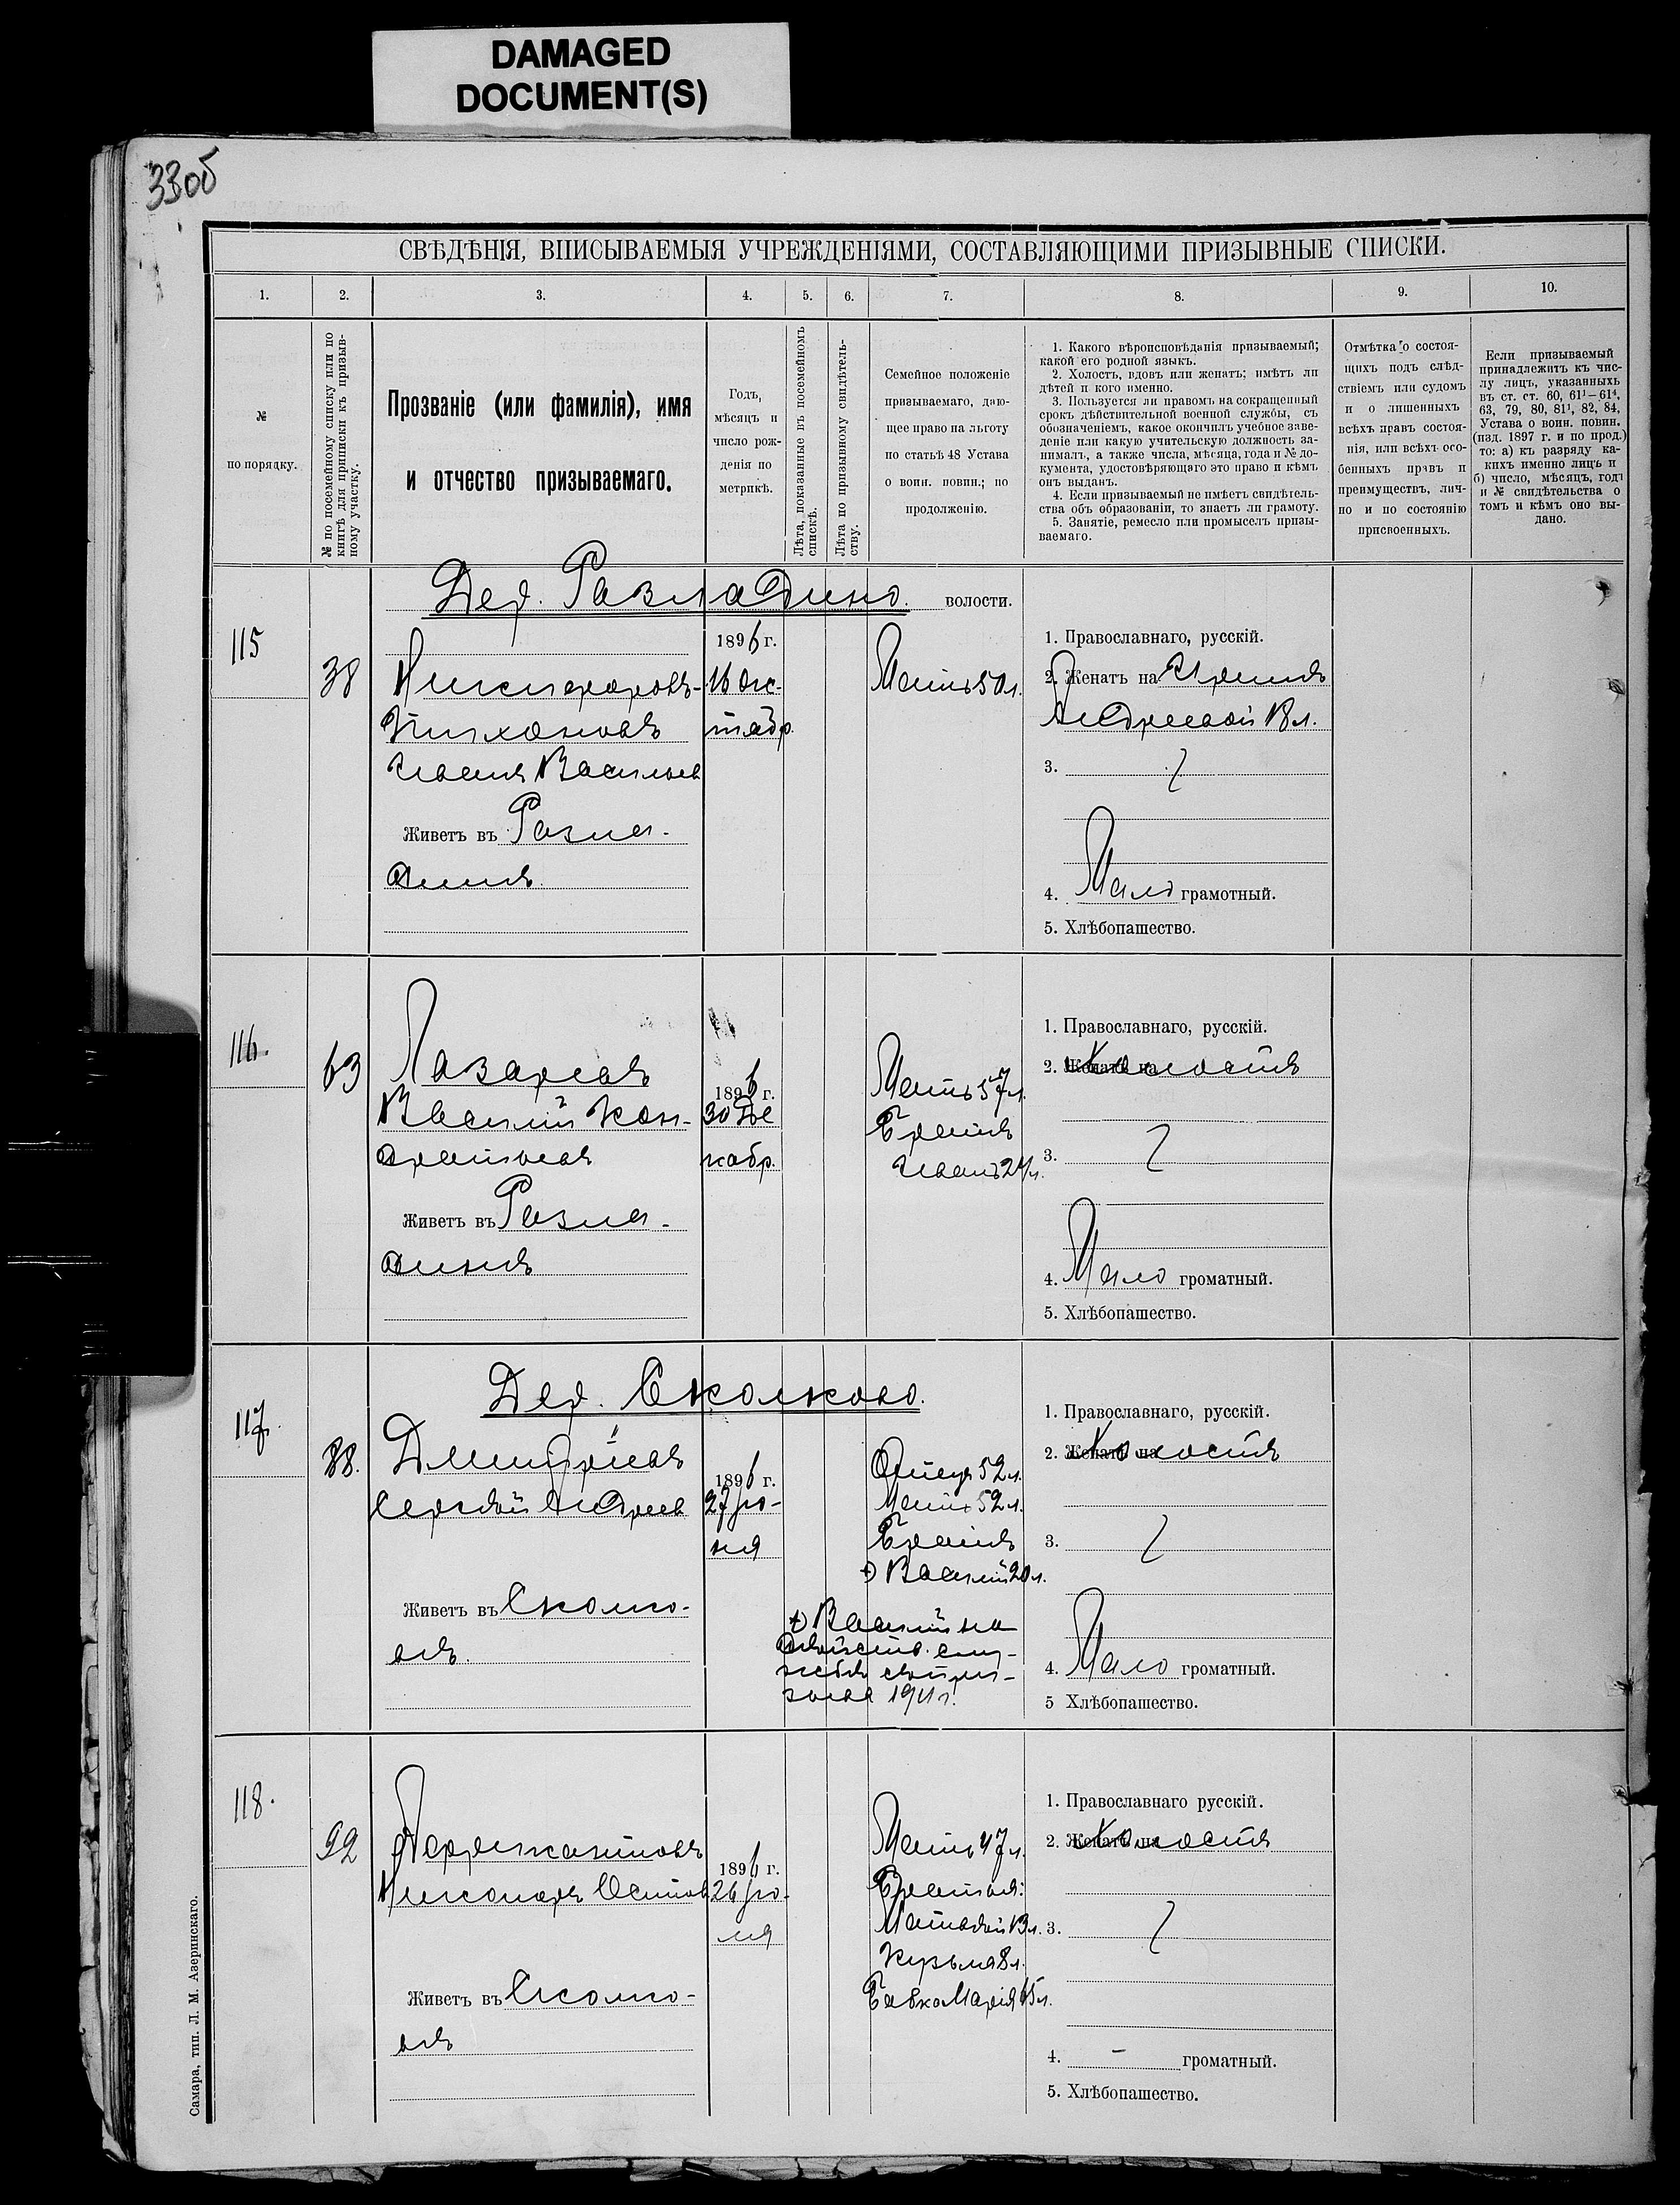 DAMAGED
DOCUMENT(S)
33об
СВѢДѢНІЯ, ВПИСЫВАЕМЫЯ УЧРЕЖДЕНІЯМИ, СОСТАВЛЯЮЩИМИ ПРИЗЫВНЫЕ СПИСКИ.
1. 2. 3. 4. 5. 6. 7. 8. 9. 10.
№
по порядку.
№ по посемейному списку или по
книгѣ для приписки къ призыв-
ному участку.
Прозваніе (или фамилія), имя
и отчество призываемаго.
Годъ,
мѣсяцъ и
число рож-
денія по
метрикѣ.
Лѣта, показанные въ посемейномъ
спискѣ.
Лѣта по призывному свидѣтель-
ству.
Семейное положеніе
призываемаго, даю-
щее право на льготу
по статьѣ 48 Устава
о воин. повин.; по
продолженію.
1. Какого вѣроисповѣданія призываемый;
какой его родной языкъ.
2. Холостъ, вдовъ или женатъ; имѣтъ ли
дѣтей и кого именно.
3. Пользуется ли правомъ на сокращенный
срокъ дѣйствительной военной службы, съ
обозначеніемъ, какое окончилъ учебное заве-
деніе или какую учительскую должность за-
нималъ, а также числа, мѣсяца, года и № до-
кумента, удостовѣряющаго это право и кѣмъ
онъ выданъ.
4. Если призываемый не имѣетъ свидѣтель-
ства объ образованіи, то знаетъ ли грамоту.
5. Занятіе, ремесло или промыселъ призы-
ваемаго.
Отмѣтка о состоя-
щихъ подъ слѣд-
ствіемъ или судомъ
и о лишенныхъ
всѣхъ правъ состоя-
нія, или всѣхъ осо-
бенныхъ правъ и
преимуществъ, лич-
но и по состоянію
присвоенныхъ.
Если призываемый
принадлежитъ къ чис-
лу лицъ, указанныхъ
въ ст. ст. 60, 61¹–61⁴,
63, 79, 80, 81¹, 82, 84,
Устава о воин. повин.
(изд. 1897 г. и по прод.)
то: а) къ разряду ка-
кихъ именно лицъ и
б) число, мѣсяцъ, годъ
и № свидѣтельства о
томъ и кѣмъ оно вы-
дано.
Дер. Разладино. волости.
115
38
Никифоровъ-
Тихоновъ
Иванъ Васильев
Живетъ въ Разла-
динѣ.
1896 г.
16 Ок-
тябр.
Мать 50 л.
1. Православнаго, русскій.
2. Женатъ на Иринѣ
Андреевой 18 л.
3.
4. Мало грамотный.
5. Хлѣбопашество.
116.
63
Лазаревъ
Василій Кон-
дратьевъ
Живетъ въ Разла-
динѣ
1896 г.
30 Де
кабр.
Мать 57 л.
Братъ
Иванъ 24 л.
1. Православнаго, русскій.
2. Женатъ на Холостъ
3.
4. Мало громатный.
5. Хлѣбопашество.
Дер. Сколково.
117.
38.
Дмитріевъ
Сергѣй Андреев
Живетъ въ Сколко-
вѣ.
1896 г.
27 Iю-
ня
Отецъ 52 л.
Мать 52 л.
Братъ
+) Василій 20 л.
+) Василій на
дѣйств. слу-
жбѣ съ при-
зыва
1. Православнаго, русскій.
2. Женатъ на Холостъ
3.
4. Мало громатный.
5 Хлѣбопашество.
118.
92
Никоноръ Осипов
Живетъ въ Сколко-
вѣ
1896 г.
26 Iю-
ля
Мать 47 л.
Братья:
Матвѣй 13 л.
Кузьма 8 л.
Бабка Марія 65 л.
1. Православнаго русскій.
2. Женатъ на Холостъ
3.
4. – громатный.
5. Хлѣбопашество.
Самара, тип. Л. М. Азеринскаго.